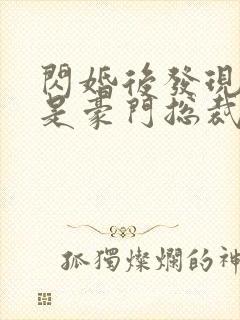 閃婚後發現
是豪門總裁
孤獨燦爛的神